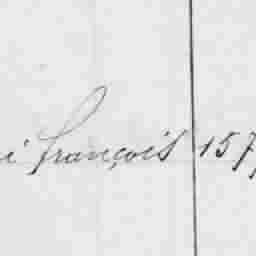 i françois 157